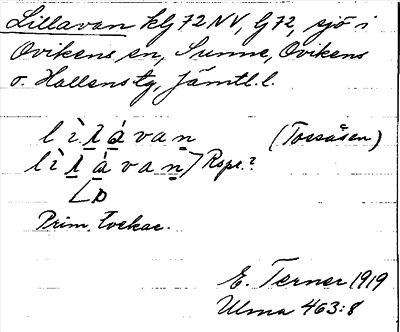 Lillavan kbg 72 NV, G 72, sjö i
Ovikens sn, Sunne, Ovikens
o. Hallens tg, Jämtl. l.
lìlàvan (Tossåsen)
lìlàvan Rspr.?
Prim.
E. Terner 1919
Ulma 463:8